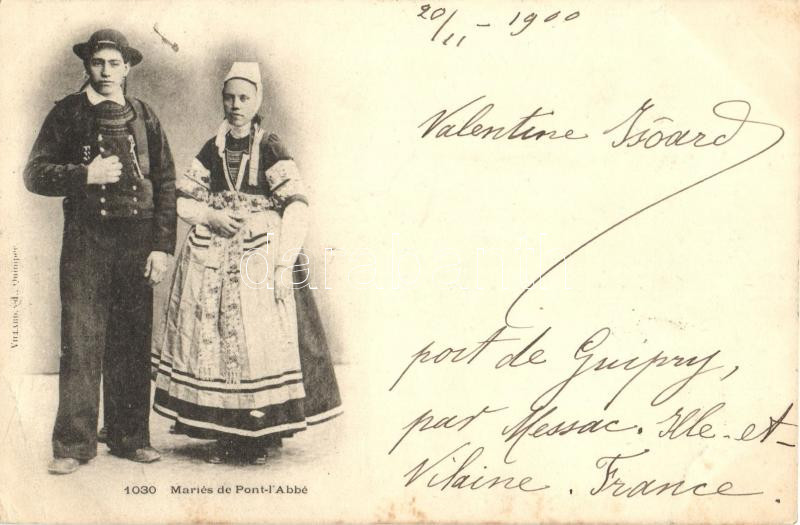 20/11 - 1900
Valentine Isôard
port de Guipry,
par Messac. Ille-et-
Vilaine. France.
VILLARD, éd., Quimper
1030 Mariés de Pont-l'Abbé